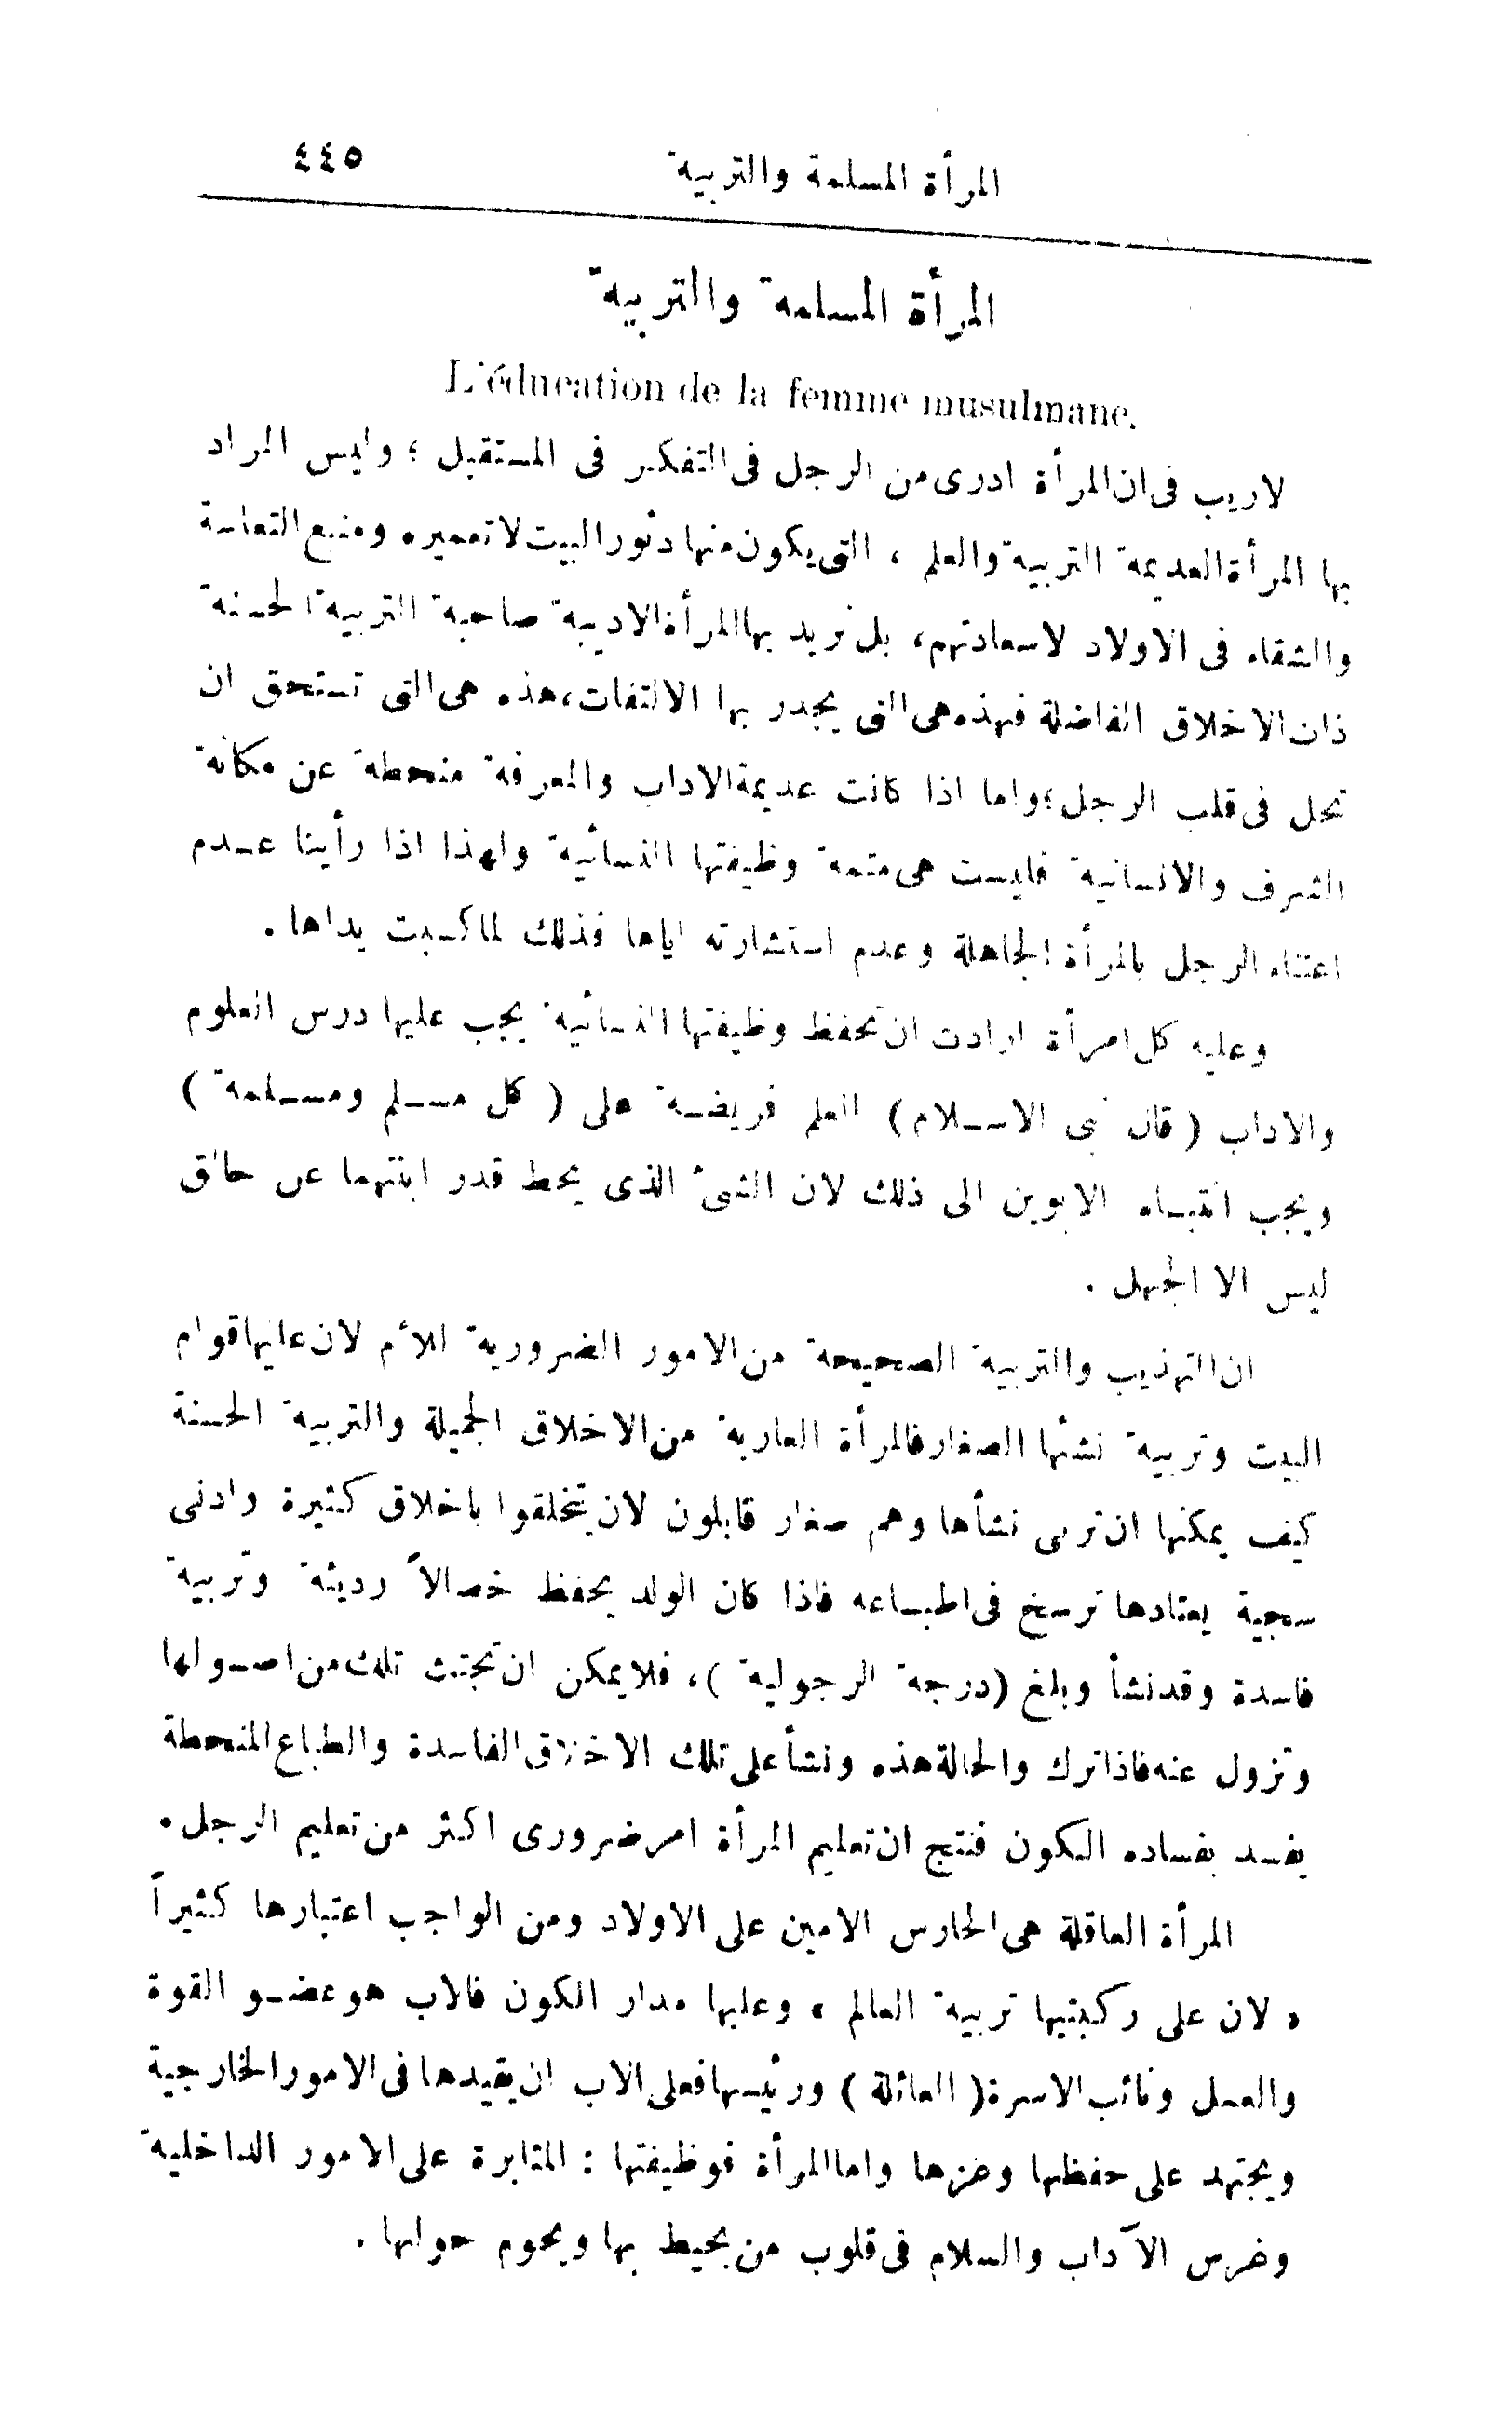 المرأة المسلمة والتربية ٤٤٥
المرأة المسلمة والتربية
L'éducation de la femme musulmane.
لاريب فى ان المرأة ادرى من الرجل فى التفكر فى المستقبل ؛ وليس المراد
بها المرأة العديمة التربية والعلم ، التى يكون منها دثور البيت لا تعميره ومنبع التعاسة
والشقاء فى الاولاد لاسعادتهم، بل نريد بها المرأة الاديبة صاحبة التربية الحسنة
ذات الاخلاق الفاضلة فهذه هى التى يجدر بها الالتفات، هذه هى التى تستحق ان
تحل فى قلب الرجل؛ واما اذا كانت عديمة الاداب والمعرفة منحطة عن مكانة
الشرف والانسانية فليست هى متممة وظيفتها النسائية ولهذا اذا رأينا عدم
اعتناء الرجل بالمرأة الجاهلة وعدم استشارته اياها فذلك لما كسبت يداها .
وعليه كل امرأة ارادت ان تحفظ وظيفتها النسائية يجب عليها درس العلوم
والاداب ( قال نبى الاسلام ) العلم فريضة على ( كل مسلم ومسلمة )
ويجب انتباه الابوين الى ذلك لان الشىء الذى يحط قدر ابنتهما عن حالق
ليس الا الجهل .
ان التهذيب والتربية الصحيحة من الامور الضرورية للأم لان عليها قوام
البيت وتربية نشئها الصغار فالمرأة العارية من الاخلاق الجميلة والتربية الحسنة
كيف يمكنها ان تربى نشأها وهم صغار قابلون لان يتخلقوا باخلاق كثيرة وادنى
سجية يعتادها ترسخ فى اطباعه فاذا كان الولد يحفظ خصالاً رديئة وتربية
فاسدة وقد نشأ وبلغ (درجة الرجولية )، فلا يمكن ان تجتث تلك من اصولها
وتزول عنه فاذا ترك والحالة هذه ونشأ على تلك الاخلاق الفاسدة والطباع المنحطة
يفسد بفساده الكون فنتج ان تعليم المرأة امر ضرورى اكثر من تعليم الرجل .
المرأة العاقلة هى الحارس الامين على الاولاد ومن الواجب اعتبارها كثيراً
« لان على ركبتيها تربية العالم » وعليها مدار الكون فالاب هو عضو القوة
والعمل ونائب الاسرة ( العائلة ) ورئيسها فعلى الاب ان يقيدها فى الامور الخارجية
ويجتهد على حفظها وعزها واما المرأة فوظيفتها : المثابرة على الامور الداخلية
وغرس الآداب والسلام فى قلوب من يحيط بها ويحوم حولها .